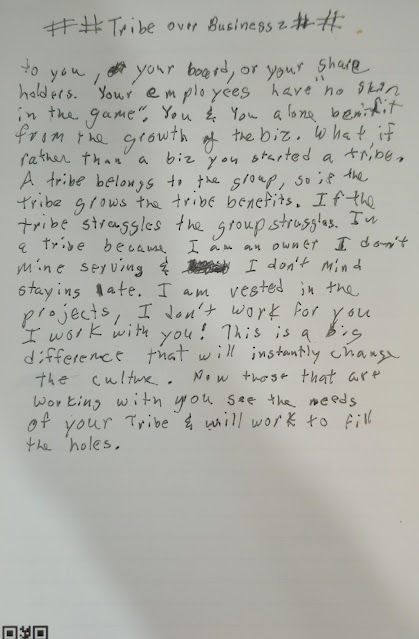 ## Tribe over Business 2 ##
to you, or your board, or your share
holders. Your employees have "no skin
in the game". You & You alone benifit
from the growth of the biz. What if
rather than a biz you started a tribe.
A tribe belongs to the group, so if the
tribe grows the tribe benefits. If the
tribe straggles the group struggles. In
a tribe because I am an owner I don't
mine serving & I don't mind
staying late. I am vested in the
projects, I don't work for you
I work with you! This is a big
difference that will instantly change
the culture. Now those that are
working with you see the needs
of your Tribe & will work to fill
the holes.